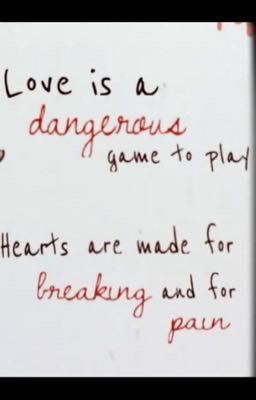 Love is a
dangerous
game to play
Hearts are made for
breaking and for
pain